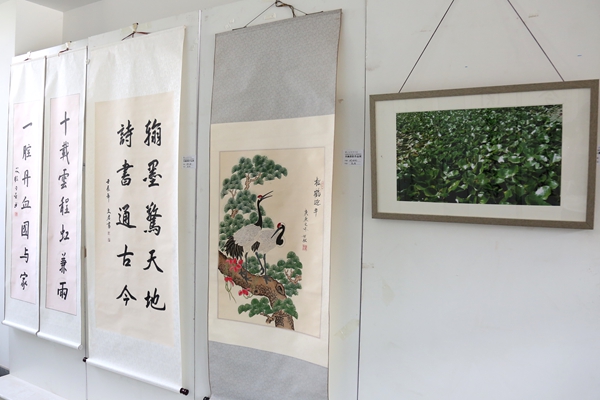 十載雲程虹兼雨
一腔丹血國与家
翰墨驚天地
詩書通古今
松鶴延年